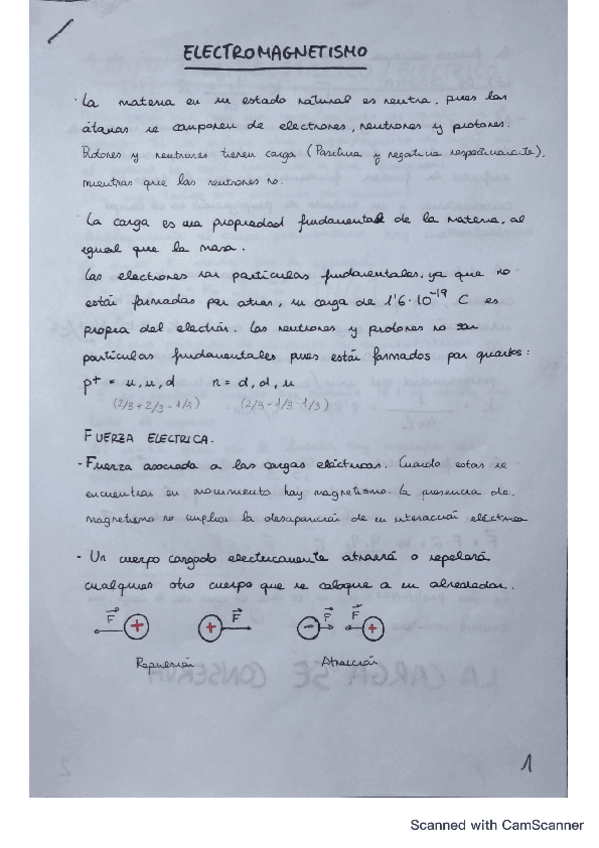 ELECTROMAGNETISMO
· La materia en su estado natural es neutra, pues los
átomos se componen de electrones, neutrones y protones.
Protones y neutrones tienen carga (Positiva y negativa respectivamente),
mientras que los neutrones no.
· La carga es una propiedad fundamental de la materia, al
igual que la masa.
Los electrones son partículas fundamentales, ya que no
están formadas por otras, su carga de 1'6·10⁻¹⁹ C es
propia del electrón. Los neutrones y protones no son
partículas fundamentales pues están formados por quarks:
p⁺ = u, u, d n = d, d, u
(2/3 + 2/3 - 1/3) (2/3 - 1/3 - 1/3)
FUERZA ELECTRICA.
- Fuerza asociada a las cargas eléctricas. Cuando estas se
encuentran en movimiento hay magnetismo. La presencia de
magnetismo no implica la desaparición de su interacción eléctrica
- Un cuerpo cargado electricamente atraerá o repelerá
cualquier otro cuerpo que se coloque a su alrededor.
F + + F - F F +
Repulsión Atracción
LA CARGA SE CONSERVA
2
1
Scanned with CamScanner